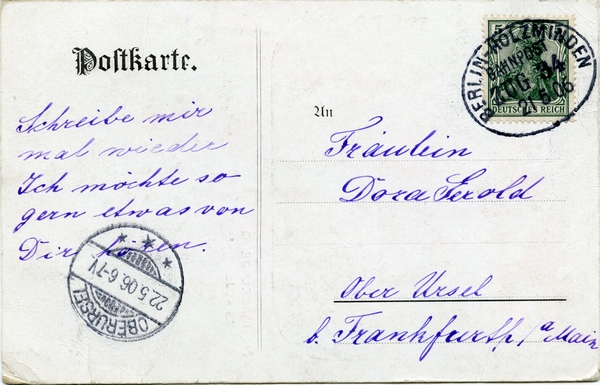 Postkarte.
Schreibe mir
mal wieder
Ich möchte so
gern etwas von
Dir
An
Fräulein
Dora
Ober Ursel
b. Frankfurth, a Main
5
DEUTSCHES REICH
BERLIN-HOLZMINDEN
BAHNPOST
ZUG 34
21.5.06
22.5.06.6-7V
OBERURSEL